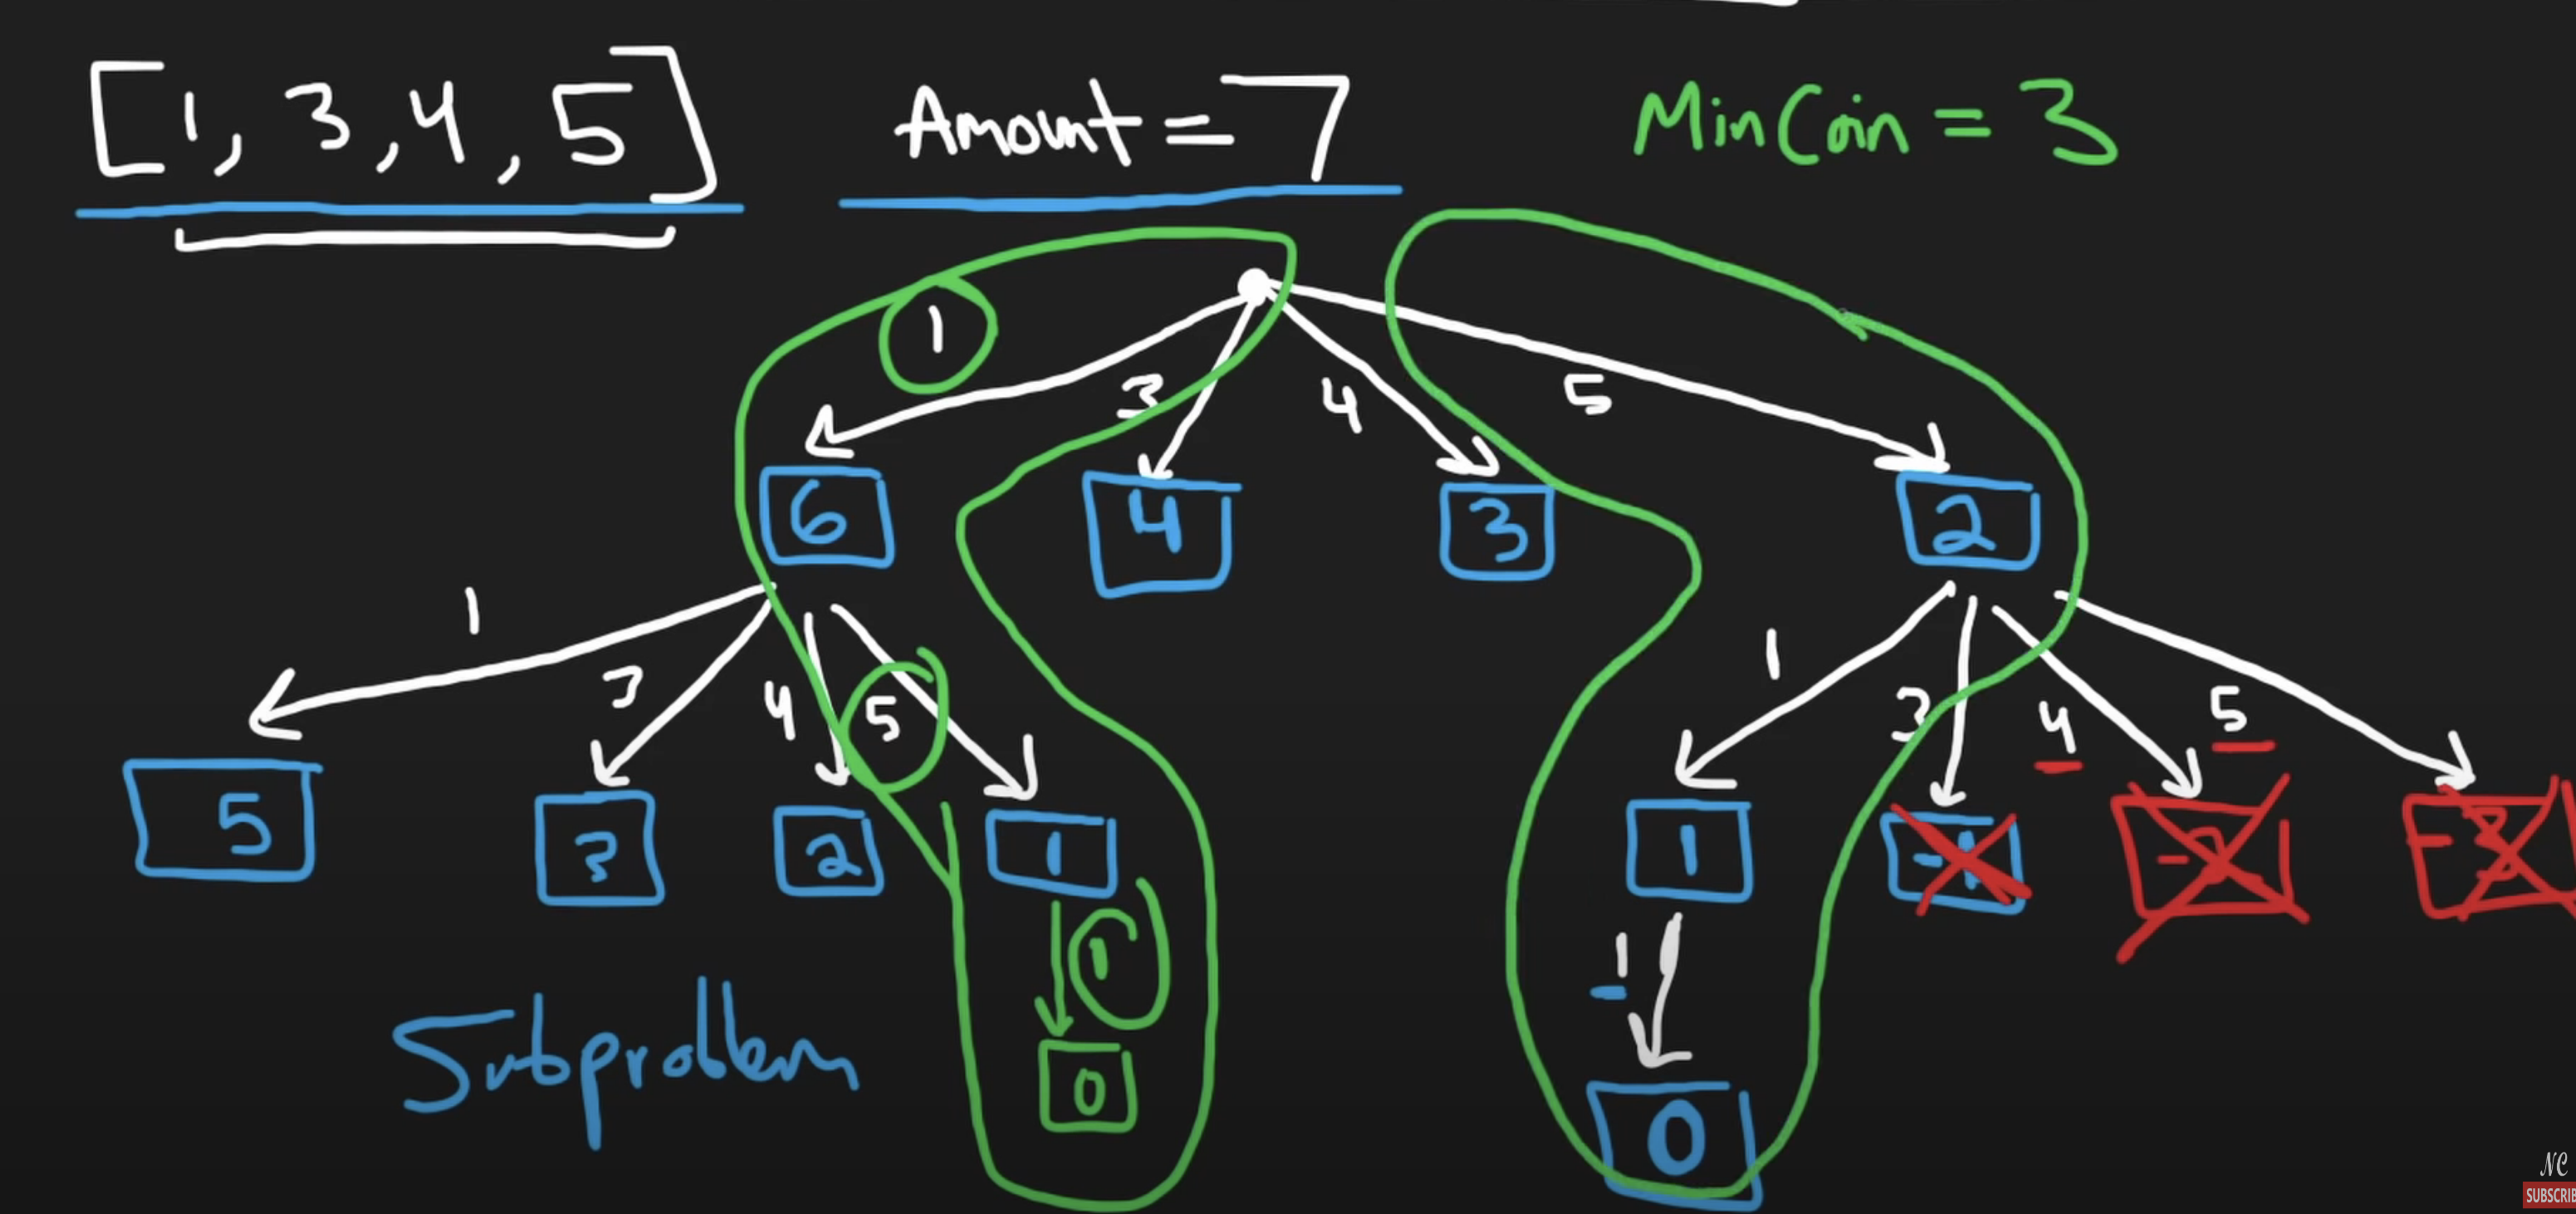 [1, 3, 4, 5] Amount = 7 MinCoin = 3
1 3 4 5
6 4 3 2
1 3 4 5 1 3 4 5
5 3 2 1 1 -1 -2 -3
1 1
0 0
Subproblem
NC
SUBSCRIB